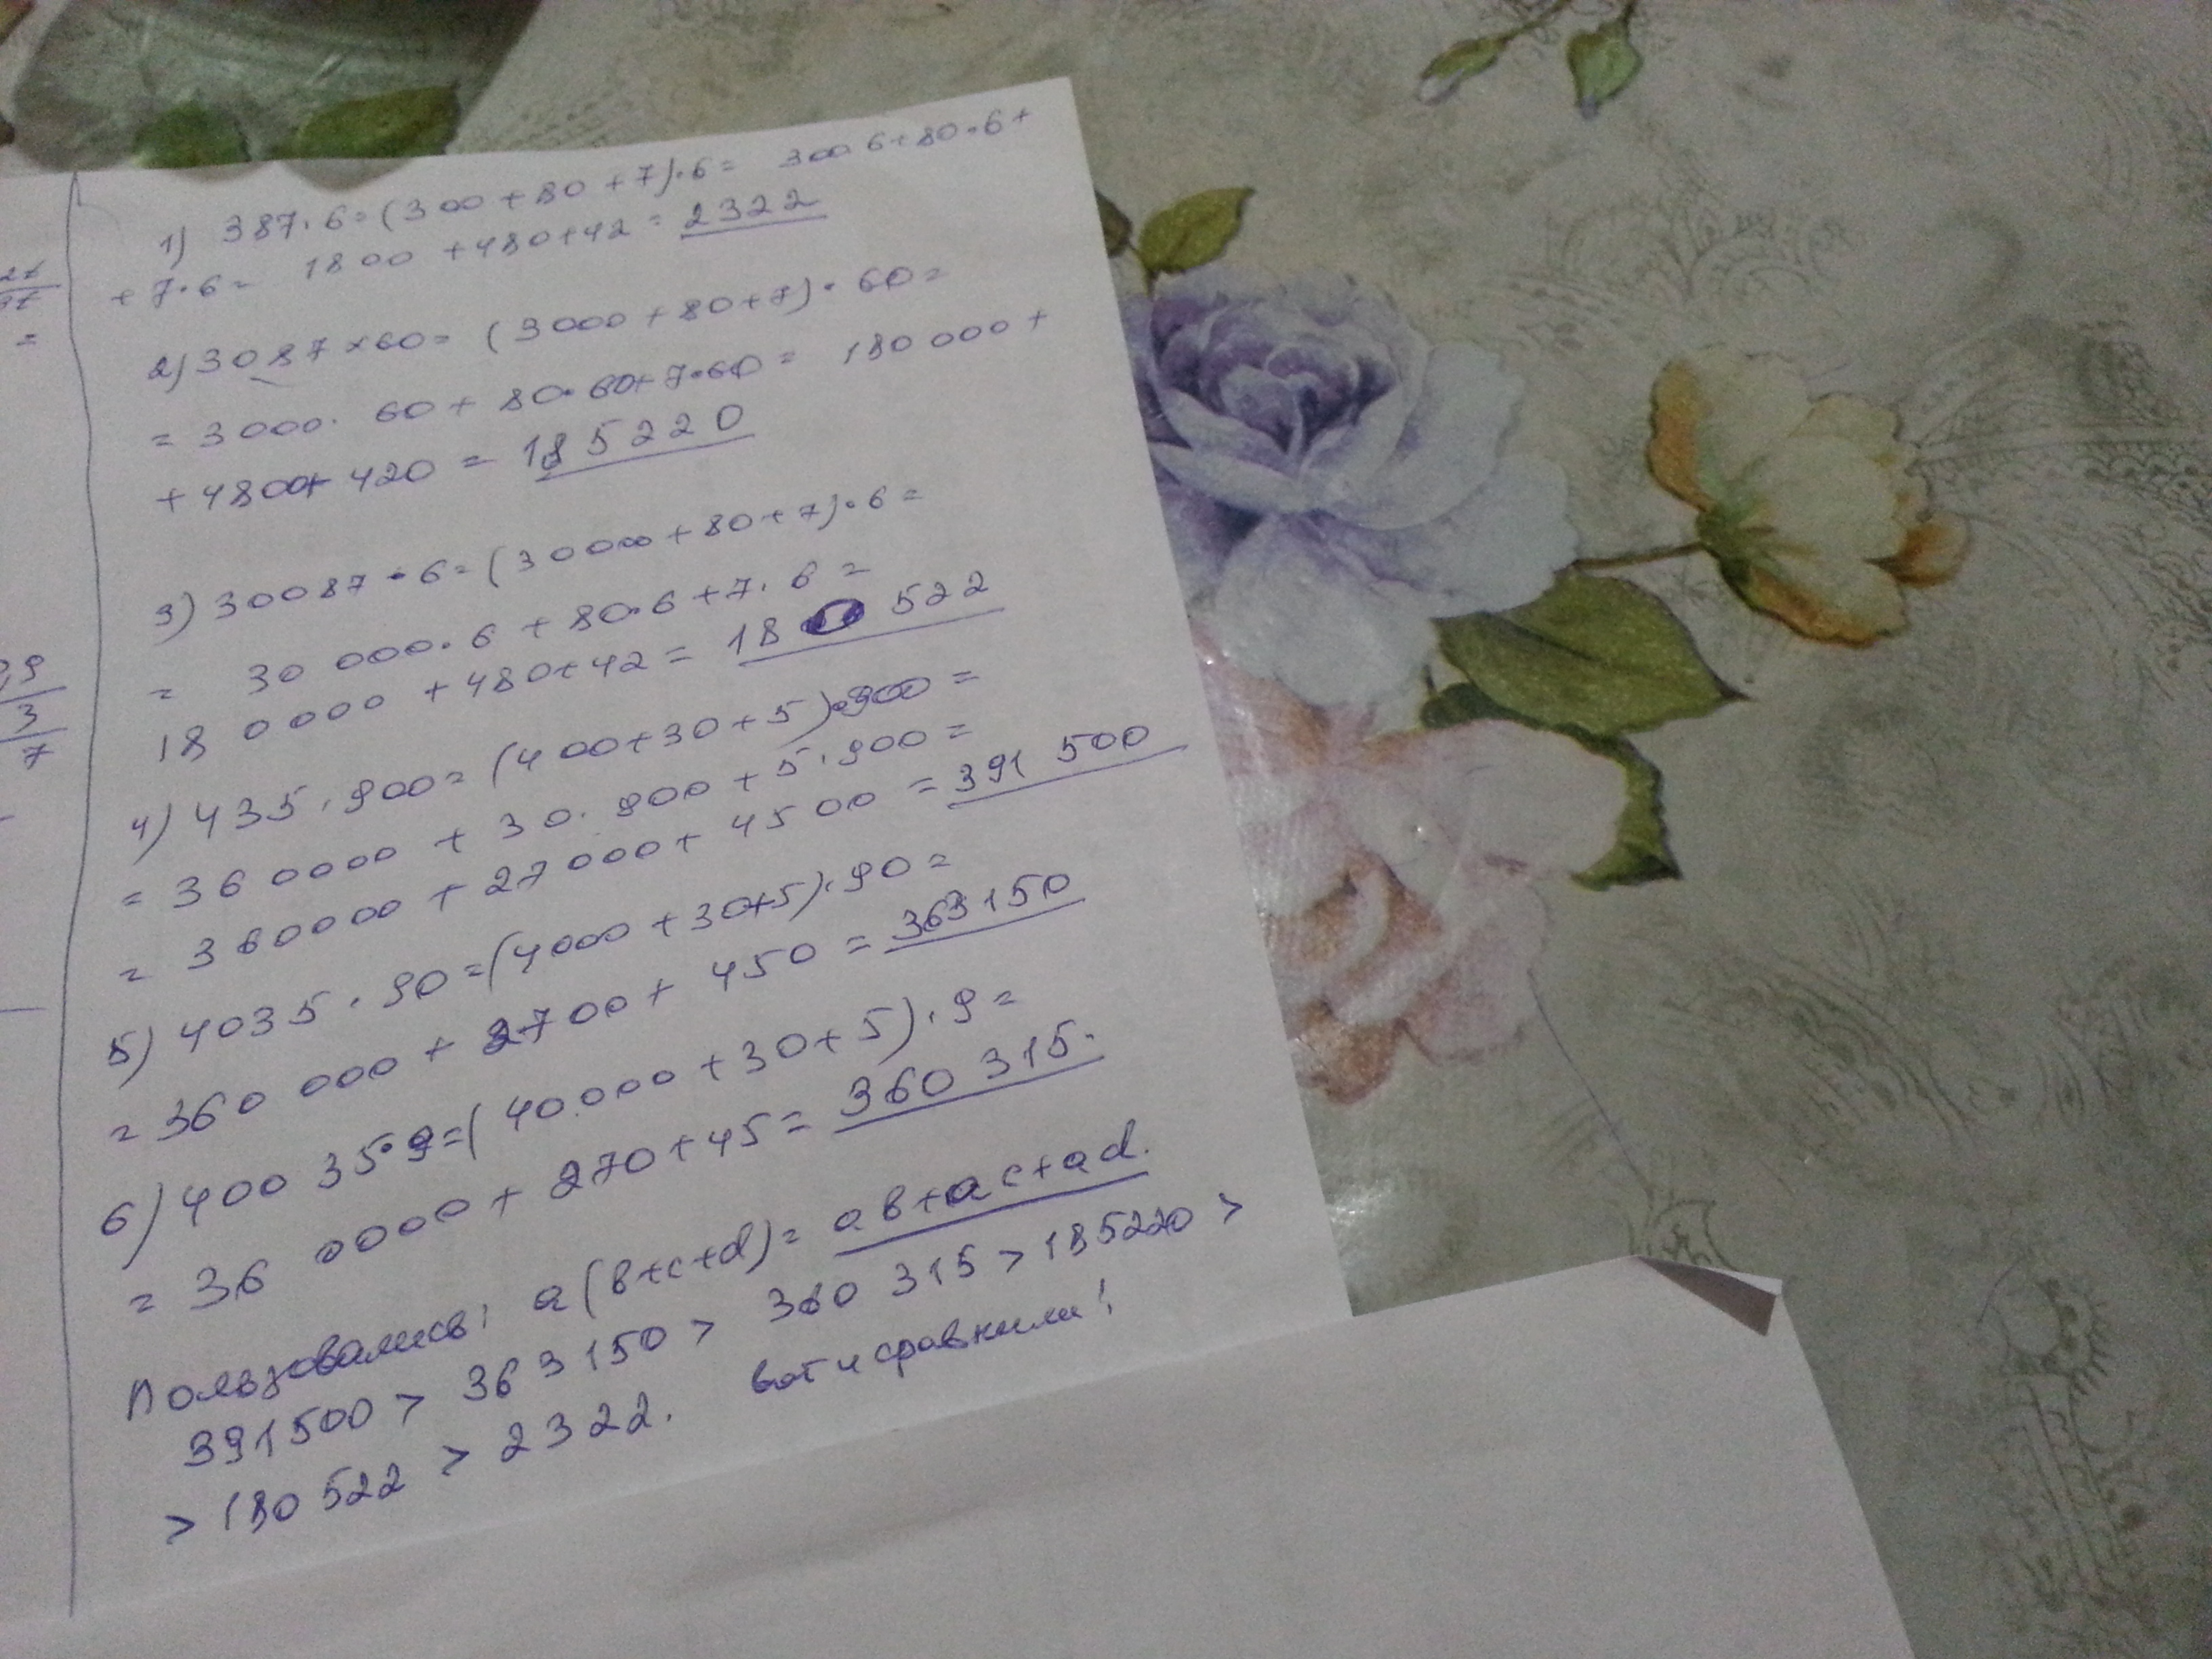 1) 387·6=(300+80+7)·6= 300·6+80·6+
+7·6= 1800+480+42=2322
2) 3087×60= (3000+80+7)·60=
=3000·60+80·60+7·60= 180000+
+4800+420=185220
3) 30087·6=(30000+80+7)·6=
= 30 000·6+80·6+7·6=
180000+480+42=180 522
4) 435·900=(400+30+5)·900=
=360000+30·900+5·900=
=360000+27000+4500=391 500
5) 4035·90=(4000+30+5)·90=
=360 000+2700+450=363150
6) 40035·9=(40.000+30+5)·9=
=360000+270+45=360 315.
Пользовались: a(b+c+d)=ab+ac+ad.
391500> 363150> 360 315>185220>
>180522>2322. вот и сравнили!
27
=
3
7